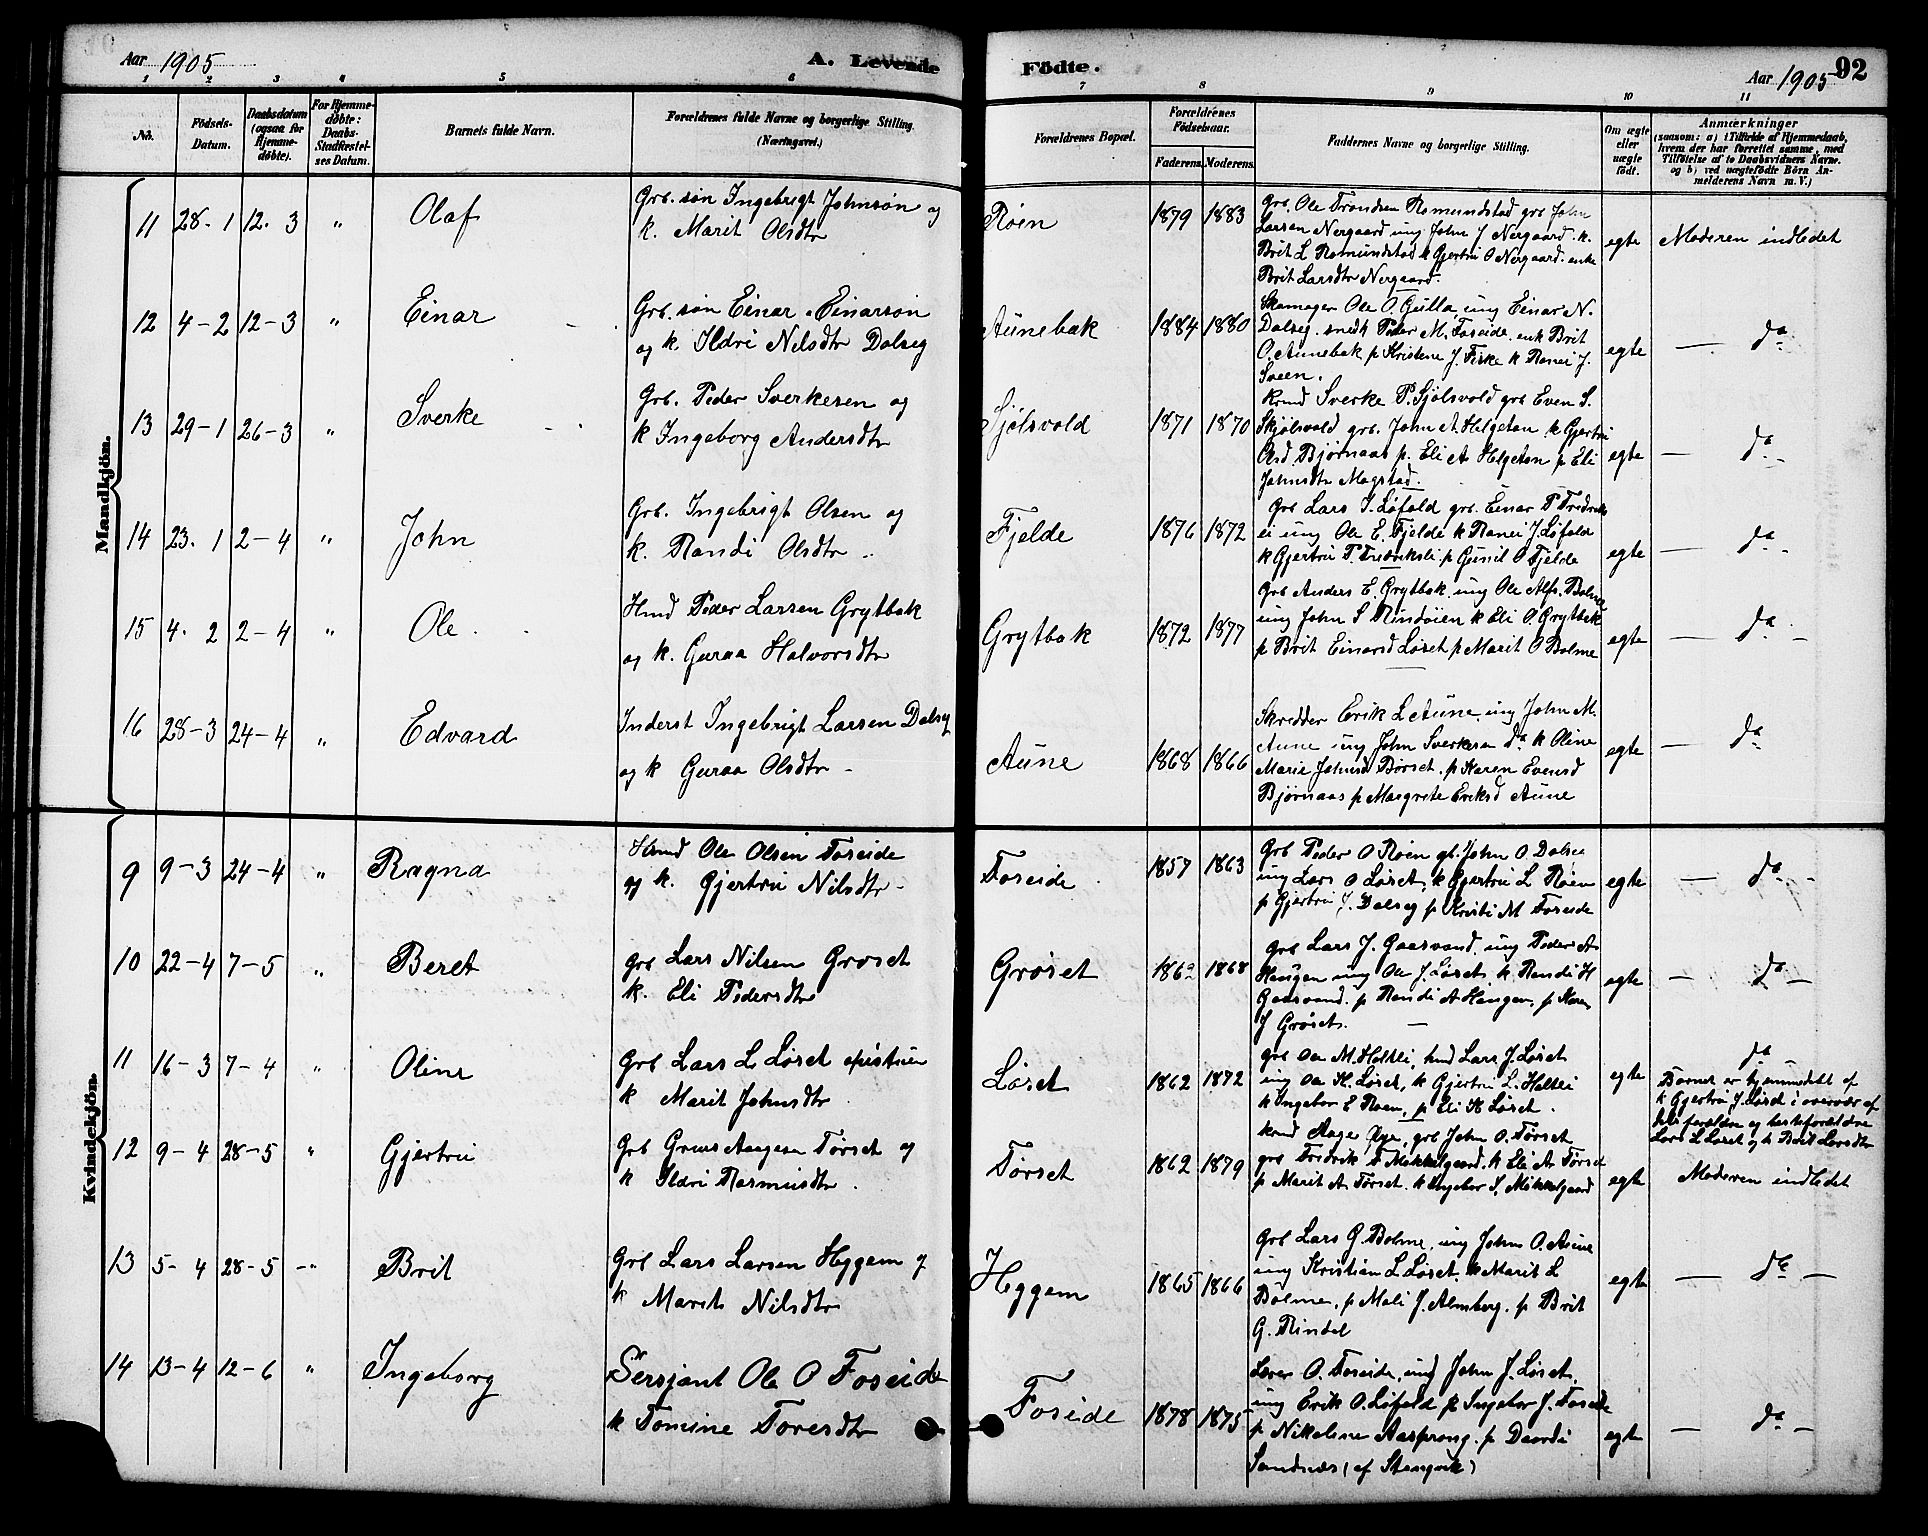 Aar 1905
A. Levende
Födte.
Aar 1905
92
1 2 3 4 5 6 7 8 9 10 11
No.
Födsels-Datum.
Daabsdatum (ogsaa for Hjemme-døbte).
For Hjemme-døbte: Daabs-Stadfæstel-ses Datum.
Barnets fulde Navn.
Forældrenes fulde Navne og borgerlige Stilling.
(Næringsvei.)
Forældrenes Bopæl.
Forældrenes Födselsaar.
Faderens. Moderens.
Faddernes Navne og borgerlige Stilling.
Om ægte eller uægte født.
Anmærkninger
(saasom: a) i Tilfælde af Hjemmedaab,
hvem der har forrettet samme, med
Tilföielse af to Daabsvidners Navne.
og b) ved uægtefödte Börn An-
melderens Navn m. V.)
Mandkjön.
11 28. 1 12. 3 " Olaf
Grb. søn Ingebrigt Johnsøn og
k. Marit Olsdtr
Røen 1879 1883
Grb. Ole Trondsen Romundstad grb John
Larsen Nergaard ung John J Nergaard. k.
Brit L Romundstad k Gjertru O Nergaard. enke
Brit Larsdtr Nergaard.
egte Moderen indledet
12 4-2 12-3 " Einar
Grb. søn Einar Einarsøn
og k. Ildri Nilsdtr Dalseg
Aunebak 1884 1880
Skomager Ole O. Gulla ung Einar N.
Dalseg. snedk Peder M. Foseide. enk Brit
O. Aunebak p Kristene J. Fiske k Ranei J.
Sveen.
egte — do
13 29-1 26-3 " Sverke
Grb. Peder Sverkesen og
k Ingeborg Andersdtr
Sjølsvold 1871 1870
Kmd Sverke P. Sjølsvold grb Even S.
Skjølsvold grb. John A. Helgetun k Gjertru
Olsd Bjørnaas p. Eli A Helgetun p Eli
Johnsdtr Magstad.
egte — do -
14 23. 1 2-4 " John
Grb. Ingebrigt Olsen og
k. Randi Olsdtr
Fjelde 1876 1872
Grb Lars I. Løfald grb. Einar P
ung Ole E. Fjelde k Ranei J. Løfald
k Gjertru P. Fredriksli p Gunil O Fjelde
egte — do -
15 4. 2 2-4 " Ole
Hmd Peder Larsen Grytbak
og k. Guraa Halvorsdtr
Grytbak 1872 1877
Grb Anders E. Grytbak ung Ole Alfs. Bolme
ung John S Rindøien k Eli O. Grytbak
p Brit Einarsd Løset p Marit O Bolme
egte — do -
16 28-3 24-4 " Edvard
Inderst Ingebrigt Larsen Dalseg
og k Guraa Olsdtr -
Aune 1868 1866
Skredder Erik L Aune. ung John M.
Aune ung John Sverkesen do k Oline
Marie Johnsd Børset. p Karen Evensd
Bjørnaas p Margrete Eriksd Aune
egte — do
Kvindekjön.
9 9-3 24-4 " Ragna
Hmd Ole Olsen Foseide
og k. Gjertru Nilsdtr -
Foseide 1857 1863
Grb Peder O Røen gb. John O. Dalseg
ung Lars O Løset, k Gjertru L Røen
p Gjertru J. Dalseg p Kristi M Foseide
egte — do -
10 22-4 7-5 " Beret
Grb Lars Nilsen Grøset
k. Eli Pedersdtr
Grøset 1862 1868
Grb Lars J. Gaasvand, ung Peder A
Haugen ung Ole J. Løset k Randi H
Gaasvand. p Randi A Haugen, p Karen
J Grøset.
egte — do —
11 16-3 7-4 " Oline
Grb Lars L Løset
k Marit Johnsdtr
Løset 1862 1872
grb Ole M. Holtli, hmd Lars J. Løset
ung Ole H. Løset, k Gjertru L. Holtli
k Ingebor E Røen, p Eli H Løset.
egte do
Barnet er hjemmedøbt af
k Gjertru J. Løset i overvær af
forældre og bedsteforældre
Lars L Løset og k Brit Larsdtr
12 9-4 28-5 " Gjertru
Grb Aagesen Tørset og
k Ildri Rasmusdtr.
Tørset 1862 1879
kmd Aage Øye, grb John O. Tørset
grb Fredrik Mikkelgaard. k Eli A Tørset
p Marit A. Tørset. k Ingebor Mikkelgaard
egte Moderen indledet
13 5-4 28-5 " Brit
Grb Lars Larsen Heggem og
k Marit Nilsdtr
Heggem 1865 1866
Grb Lars G. Bolme, ung John O. Aune
ung Kristian L Løset, k Marit L
Bolme, p Mali J. Almberg. p Brit
G. Rindal
egte — do —
14 13-4 12-6 " Ingeborg
Sersjant Ole O Foseide
k Tomine Toresdtr
Foseide 1878 1875
Lærer O. Foseide, ung John J. Løset,
ung Erik O. Løfald p Ingebor J. Foseide
p Nikoline Aasprong. p Dordi
Sandnes (af Stangvik)
egte — do —